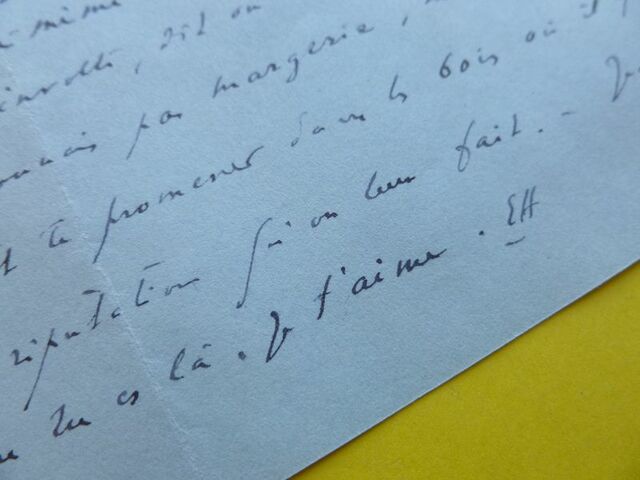 même
dit on
pas margerie,
te promener dans les bois où
réputation qu'on leur fait. - J
tu es là. Je t'aime. EH